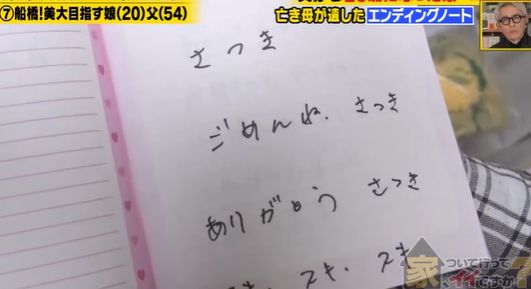 ⑦船橋!美大目指す娘(20)父(54)
亡き母が遺した エンディングノート
さつき
ごめんね、さつき
ありがとう さつき
スキ、スキ
家、ついて行ってイイですか?